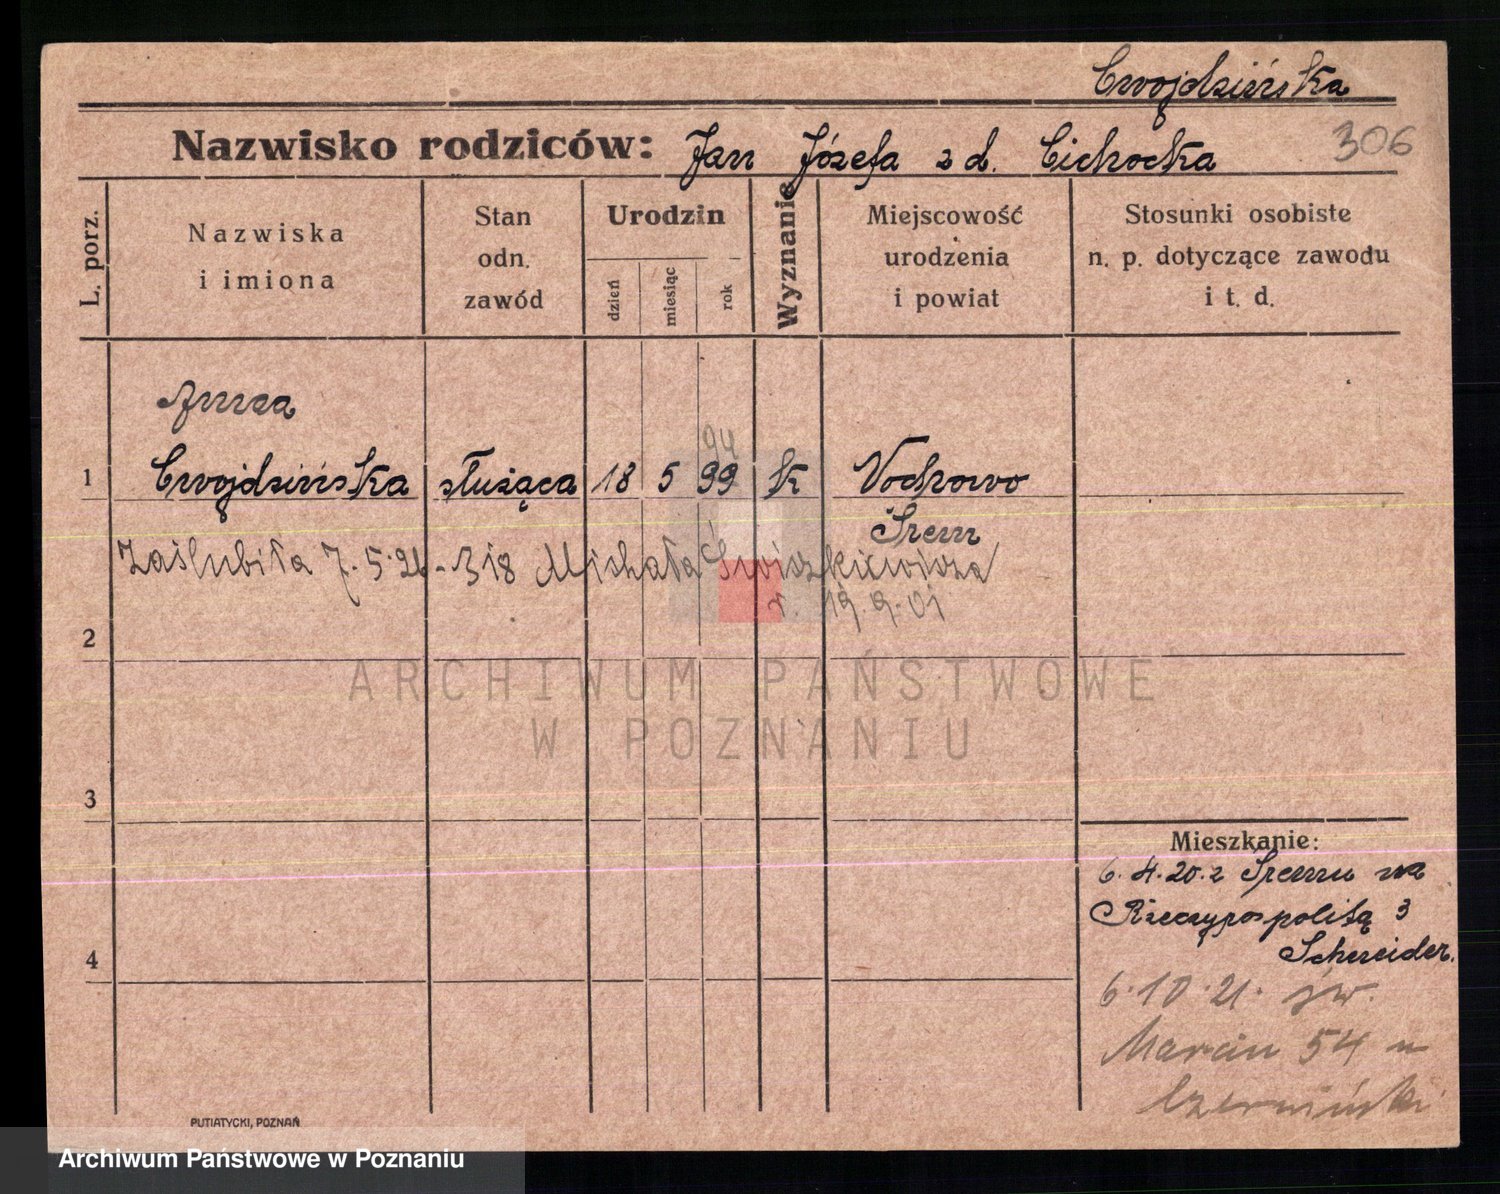 Cwojdzińska
306
Nazwisko rodziców: Jan Józefa z d. Cichocka
L. porz.
Nazwiska i imiona
Stan odn. zawód
Urodzin
dzień
miesiąc
rok
Wyznanie
Miejscowość urodzenia i powiat
Stosunki osobiste n. p. dotyczące zawodu i t. d.
Anna
94
1 Cwojdzińska służąca 18 5 99 k Wochowo
Śrem
Zaślubiła 7.5.26 - 318 Michała
r. 19.9.01
2
ARCHIWUM PAŃSTWOWE
W POZNANIU
3
Mieszkanie:
6.4.20. z Śremu na
Rzeczypospolitą 3
Schneider.
4
6.10.21. św.
Marcin 54 u
Czermiński
PUTIATYCKI, POZNAŃ
Archiwum Państwowe w Poznaniu